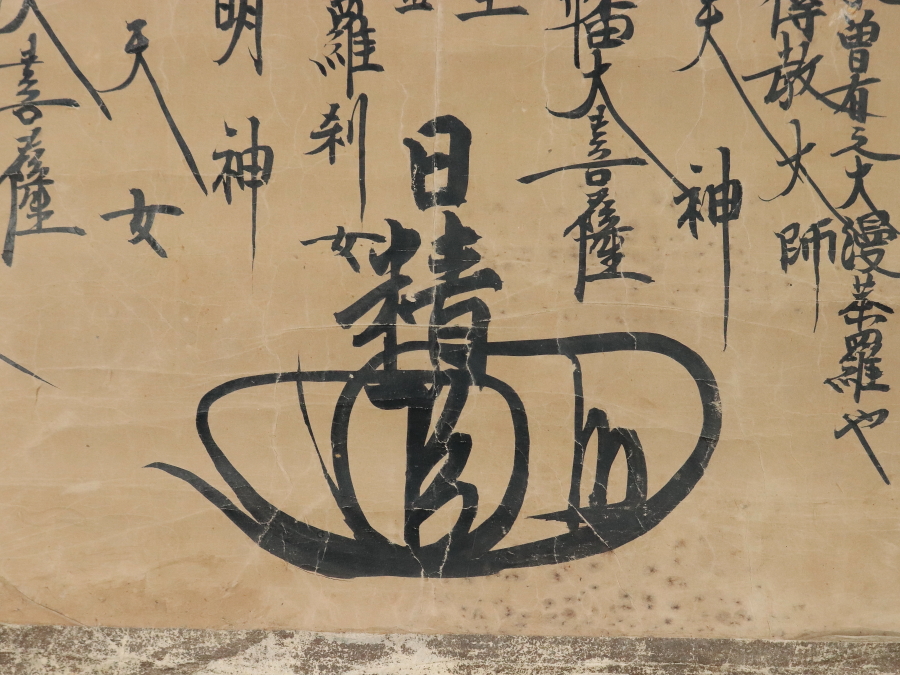 曽有之大漫荼羅也
傳教大師
天神
幡大菩薩
日精
羅刹女
明神
天女
菩薩